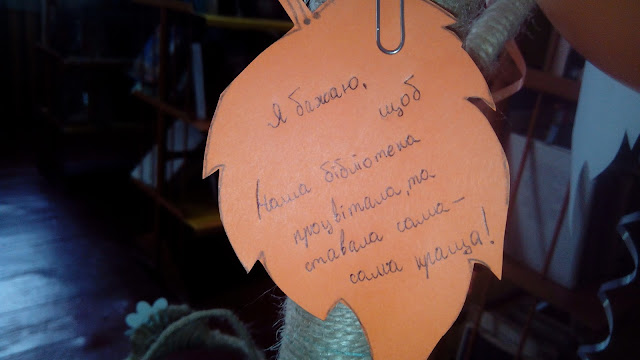 Я бажаю,
щоб
Наша бібліотека
процвітала, та
ставала сама-
сама краща!